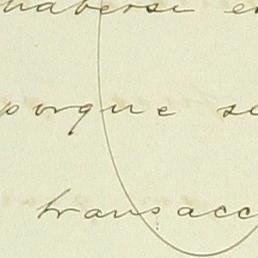 haberse e
porque se
transacc